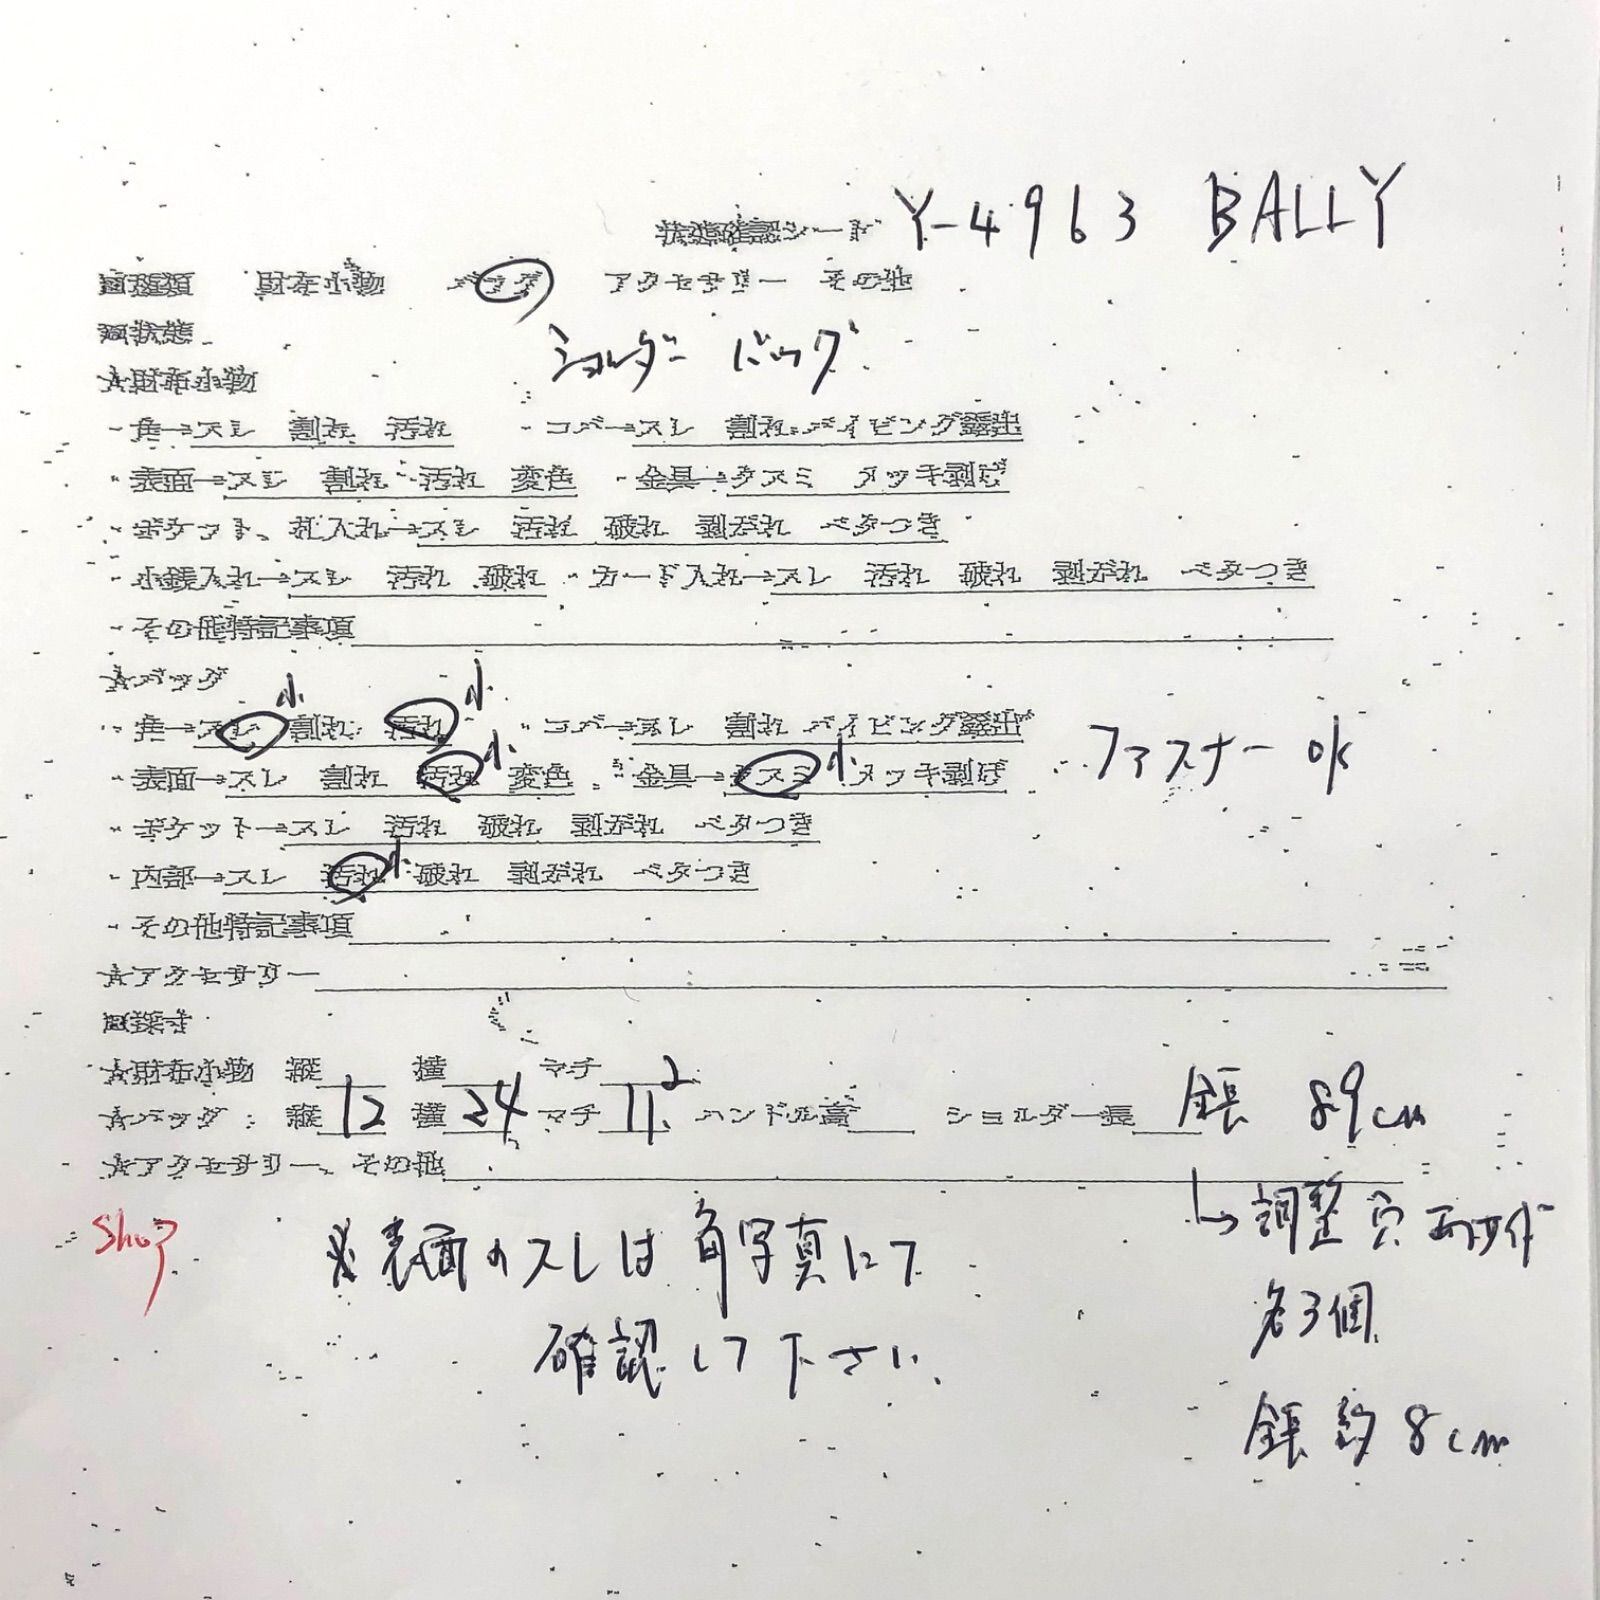 状態確認シート Y-4963 BALLY
□種類 財布小物 バッグ アクセサリー その他
□状態
ショルダー バッグ
☆財布小物
・角→スレ 割れ 汚れ ・コバ→スレ 割れ パイピング露出
・表面→スレ 割れ 汚れ 変色 ・金具→クスミ メッキ剥げ
・ポケット、札入れ→スレ 汚れ 破れ 剥がれ ベタつき
・小銭入れ→スレ 汚れ 破れ ・カード入れ→スレ 汚れ 破れ 剥がれ ベタつき
・その他特記事項
☆バッグ
・角→スレ 小 割れ 汚れ 小 ・コバ→スレ 割れ パイピング露出
・表面→スレ 割れ 汚れ 小 変色 ・金具→クスミ 小 メッキ剥げ ファスナー OK
・ポケット→スレ 汚れ 破れ 剥がれ ベタつき
・内部→スレ 汚れ 小 破れ 剥がれ ベタつき
・その他特記事項
☆アクセサリー
□採寸
☆財布小物 縦 横 マチ
☆バッグ:縦 12 横 24 マチ 11.2 ハンドル高 ショルダー長 全長 89cm
☆アクセサリー、その他
↳調整穴
各3個
全長約8cm
Shop
※表面のスレは角写真にて
確認して下さい、